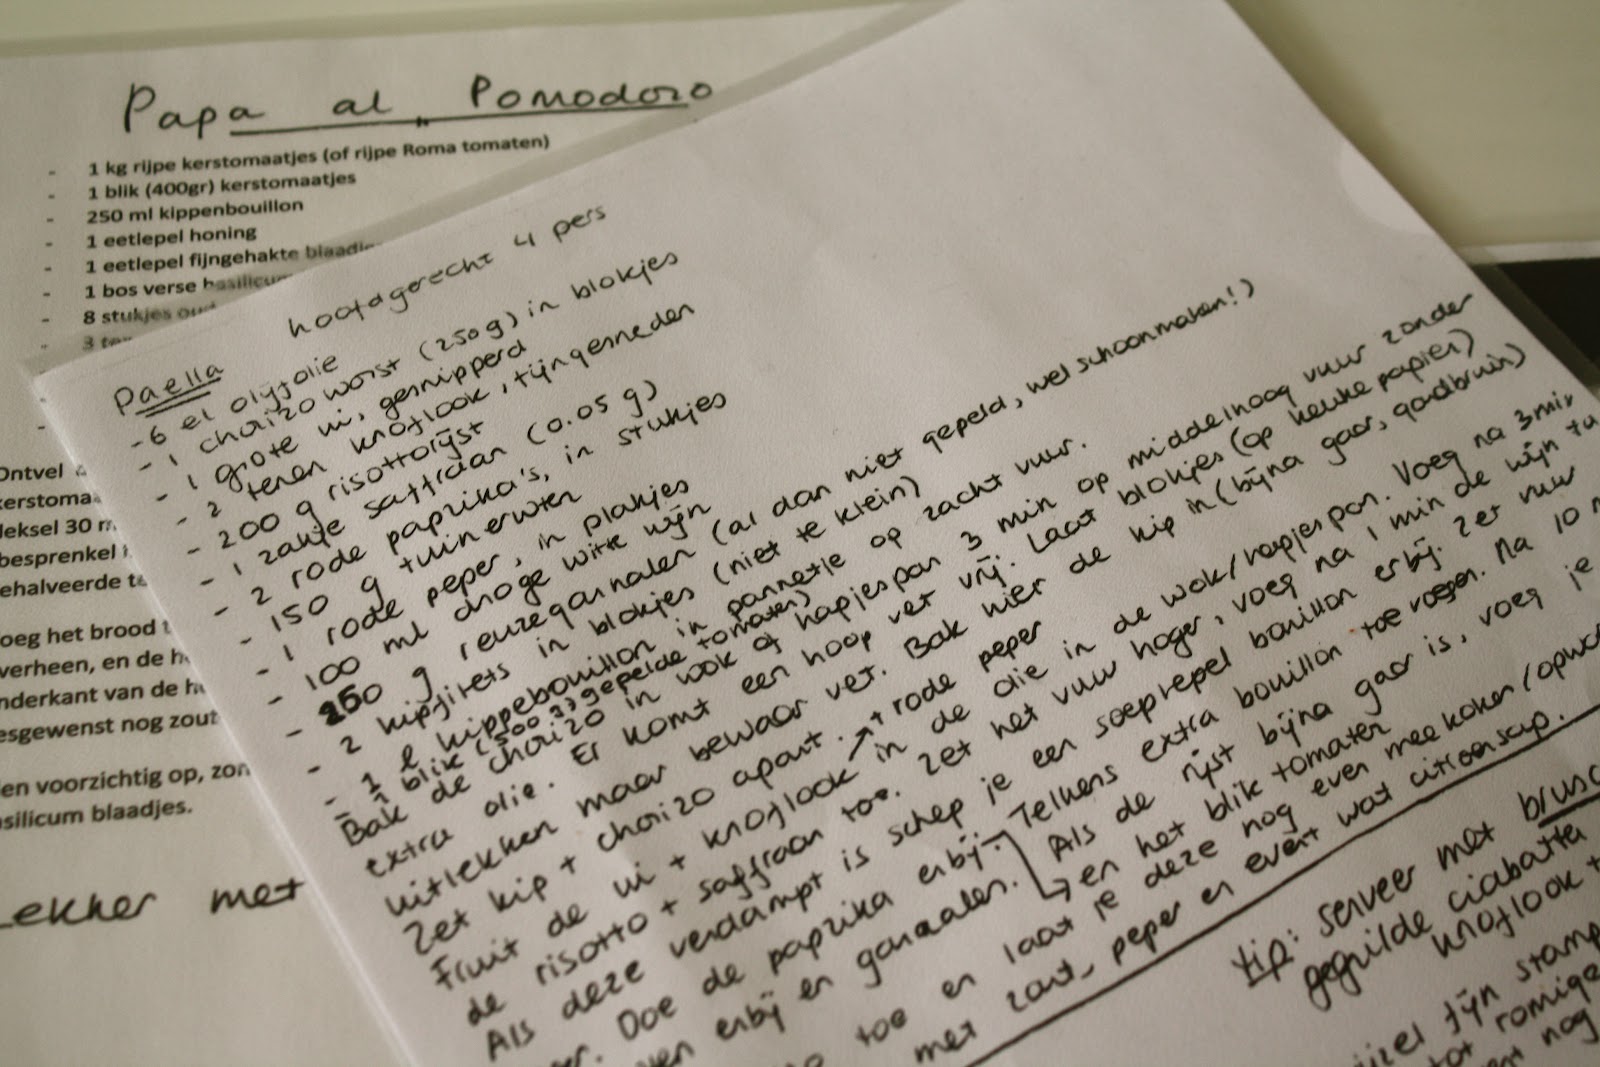 Papa al Pomodoro
- 1 kg rijpe kerstomaatjes (of rijpe Roma tomaten)
- 1 blik (400gr) kerstomaatjes
- 250 ml kippenbouillon
- 1 eetlepel honing
- 1 eetlepel fijngehakte
- 1 bos verse
- 8 stukjes
- 3
Ontvel
deksel 30
besprenkel
het brood
verheen, en de
van de
nog zout
voorzichtig op,
blaadjes.
Lekker met
Paella hoofdgerecht 4 pers
- 6 el olijfolie
- 1 chorizo worst (250 g) in blokjes
- 1 grote ui, gesnipperd
- 2 tenen knoflook, fijngesneden
- 200 g risottorijst
- 1 zakje saffraan (0.05 g)
- 2 rode paprika's, in stukjes
- 150 g tuinerwten
- 1 rode peper, in plakjes
- 100 ml droge witte wijn
- 250 g reuzegarnalen (al dan niet gepeld, wel schoonmaken!)
- 2 kipfilets in blokjes (niet te klein)
- 1 l kippebouillon in pannetje op zacht vuur.
- 1 blik (500 g) gepelde tomaten)
Bak de chorizo in wok of hapjespan 3 min op middelhoog vuur zonder
extra olie. Er komt een hoop vet vrij. Laat blokjes (op keukenpapier)
uitlekken maar bewaar vet. Bak hier de kip in (bijna gaar, goudbruin)
Zet kip + chorizo apart. + rode peper
Fruit de ui + knoflook in de olie in de wok/hapjespan. Voeg na 3 min
de risotto + saffraan toe. Zet het vuur hoger, voeg na 1 min de wijn
Als deze verdampt is schep je een soeplepel bouillon erbij. Zet vuur
Doe de paprika erbij. Telkens extra bouillon toe voegen. Na 10
erbij en garnalen. Als de rijst bijna gaar is, voeg je
en het blik tomaten
toe en laat je deze nog even mee koken
met zout, peper en evt wat citroensap.
tip: serveer met
gegrilde ciabatta
knoflook
fijn